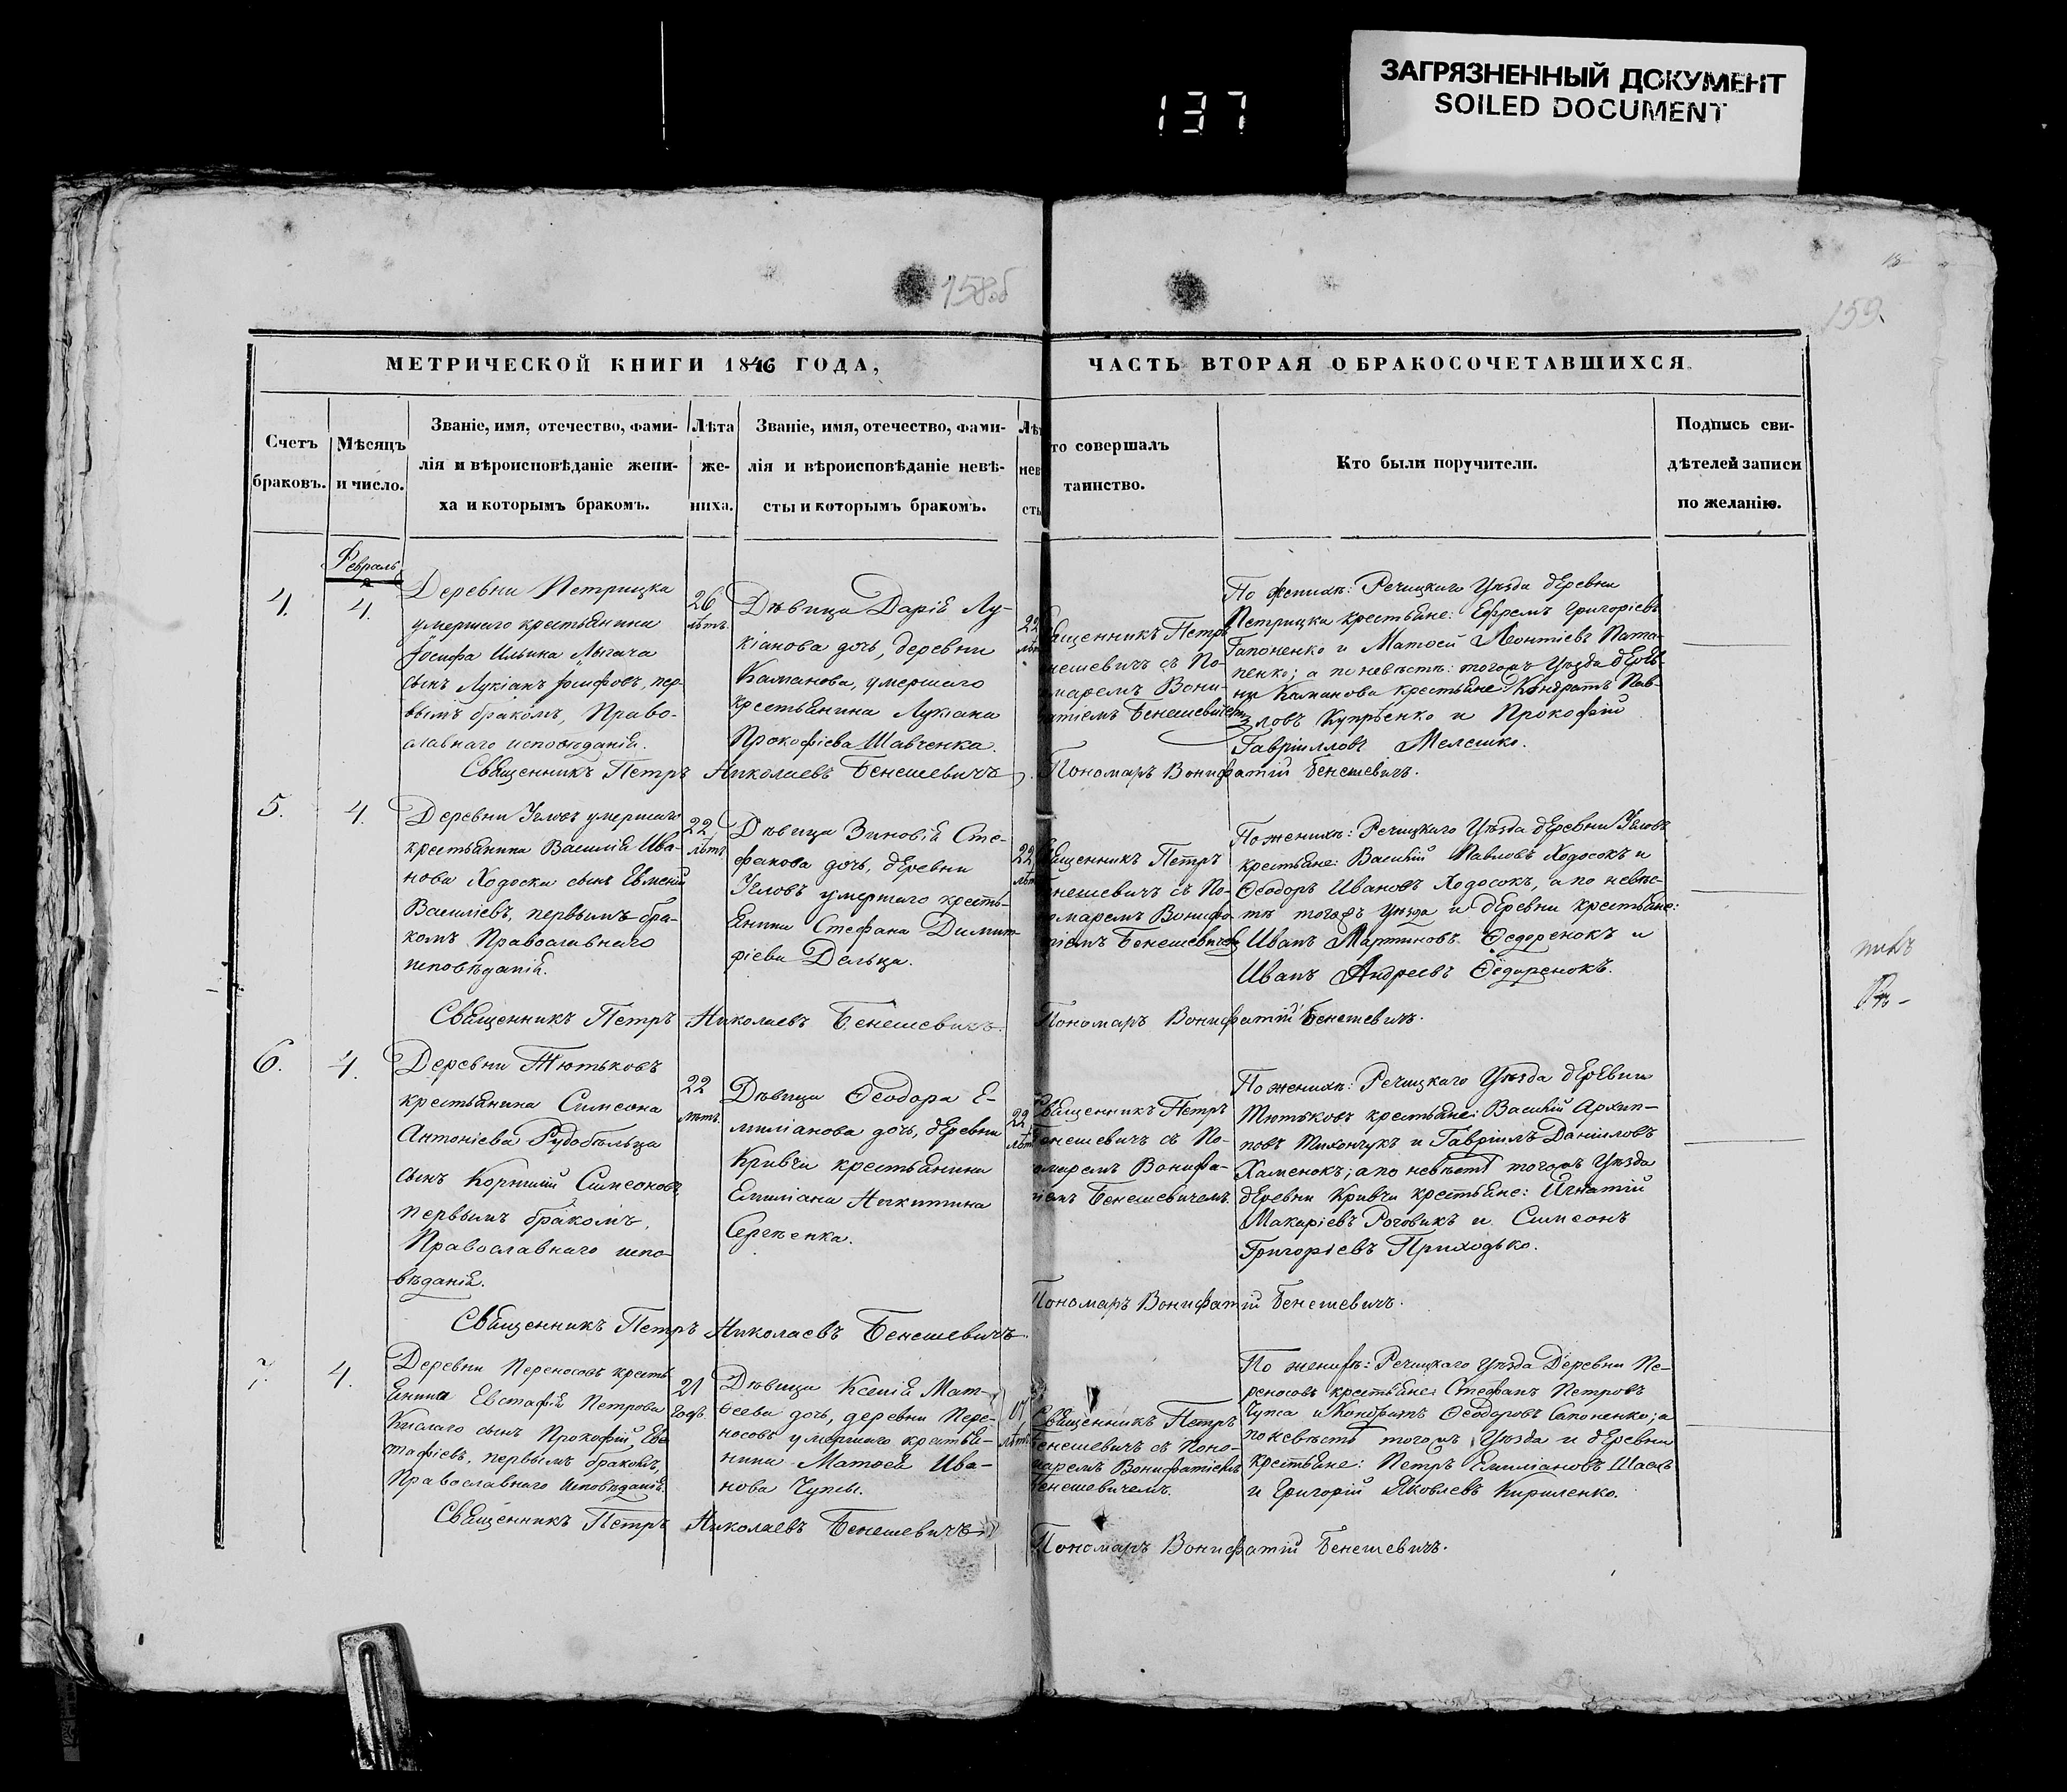 ЗАГРЯЗНЕННЫЙ ДОКУМЕНТ
SOILED DOCUMENT
137
158об
159.
МЕТРИЧЕСКОЙ КНИГИ 1846 ГОДА,
ЧАСТЬ ВТОРАЯ О БРАКОСОЧЕТАВШИХСЯ.
Счетъ
браковъ.
Мѣсяцъ
и число.
Званіе, имя, отечество, фами-
лія и вѣроисповѣданіе жени-
ха и которымъ бракомъ.
Лѣта
же-
ниха.
Званіе, имя, отечество, фами-
лія и вѣроисповѣданіе невѣ-
сты и которымъ бракомъ.
Лѣт
нев
сты
то совершалъ
таинство.
Кто были поручители.
Подпись сви-
дѣтелей записи
по желанію.
Февраль
4.
4.
Деревни Петрицка
умершаго крестьянина
Іосифа Ильина Лыгача
сынъ Лукіанъ Іосифовъ, пер-
вымъ бракомъ, Право-
славнаго исповѣданія.
26
лѣтъ.
Дѣвица Дарія Лу-
кіанова дочь, деревни
Каманова, умершаго
крестьянина Лукіана
Прокофіева Шавченка.
22
лѣт
ященникъ Петръ
нешевичъ съ По-
маремъ Вони-
атіемъ Бенешевичемъ
По женихѣ: Речицкаго Уѣзда деревни
Петрицка крестьяне: Ефремъ Григоріевъ
Гапоненко и Матѳей Леонтіевъ Пата-
пенко; а по невѣстѣ: тогожъ Уѣзда дерев-
ни Каманова крестьяне: Кондратъ Пав-
ловъ Купрѣенко и Прокофій
Гавріиловъ Мелешко.
Священникъ Петръ Николаевъ Бенешевичъ.
Пономаръ Вонифатій Бенешевичъ.
5.
4.
Деревни Угловъ умершаго
крестьянина Василія Ива-
нова Ходоска сынъ Евменій
Василіевъ, первымъ бра-
комъ Православнаго
исповѣданія.
22
лѣтъ
Дѣвица Зиновія Сте-
фанова дочь, деревни
Угловъ умершаго кресть-
янина Стефана Димит-
ріева Дельца.
22
лѣт
ященникъ Петръ
нешевичъ съ По-
омаремъ Вонифа-
тіемъ Бенешевичемъ
По женихѣ: Речицкаго Уѣзда деревни Угловъ
крестьяне: Василій Павловъ Ходосокъ и
Ѳеодоръ Ивановъ Ходосокъ, а по невѣс-
тѣ тогожъ Уѣзда и деревни крестьяне:
Иванъ Мартиновъ Ѳедоренокъ и
Иванъ Андреевъ Ѳедоренокъ.
Священникъ Петръ Николаевъ Бенешевичъ.
Пономаръ Вонифатій Бенешевичъ.
6.
4.
Деревни Тютьковъ
крестьянина Симеона
Антоніева Рудобѣльца
сынъ Корнилій Симеоновъ,
первымъ бракомъ,
Православнаго испо-
вѣданія.
22
лѣтъ.
Дѣвица Ѳеодора Е-
миліанова дочь, деревни
Кривчи крестьянина
Емиліана Никитина
Серѣенка.
22
лѣт
Священникъ Петръ
Бенешевичъ съ По-
омаремъ Вонифа-
тіемъ Бенешевичемъ.
По женихѣ: Речицкаго Уѣзда деревни
Тютьковъ крестьяне: Василій Архип-
повъ Тихончукъ и Гавріилъ Даніиловъ
Хаменокъ; а по невѣстѣ тогожъ Уѣзда
деревни Кривчи крестьяне: Игнатій
Макаріевъ Роговикъ и Симеонъ
Григоріевъ Приходько.
Священникъ Петръ Николаевъ Бенешевичъ.
Пономаръ Вонифатій Бенешевичъ.
7.
4.
Деревни Переносовъ кресть-
янина Евстафія Петрова
Кислаго сынъ Прокофій Евс-
тафіевъ, первымъ бракомъ,
Православнаго исповѣданія.
21
годъ.
Дѣвица Ксенія Мат-
ѳеева дочь, деревни Пере-
носовъ умершаго крестья-
нина Матѳея Ива-
нова Чупы.
лѣтъ
Священникъ Петръ
Бенешевичъ съ Поно-
маремъ Вонифатіемъ
Бенешевичемъ.
По женихѣ: Речицкаго Уѣзда Деревни Пе-
реносовъ крестьяне: Стефанъ Петровъ
Чупа и Кондратъ Ѳеодоровъ Сапоненко; а
по невѣстѣ тогожъ Уѣзда и деревни
крестьяне: Петръ Емиліановъ Шаецъ
и Григорій Яковлевъ Кириленко.
Священникъ Петръ Николаевъ Бенешевичъ
Пономаръ Вонифатій Бенешевичъ.